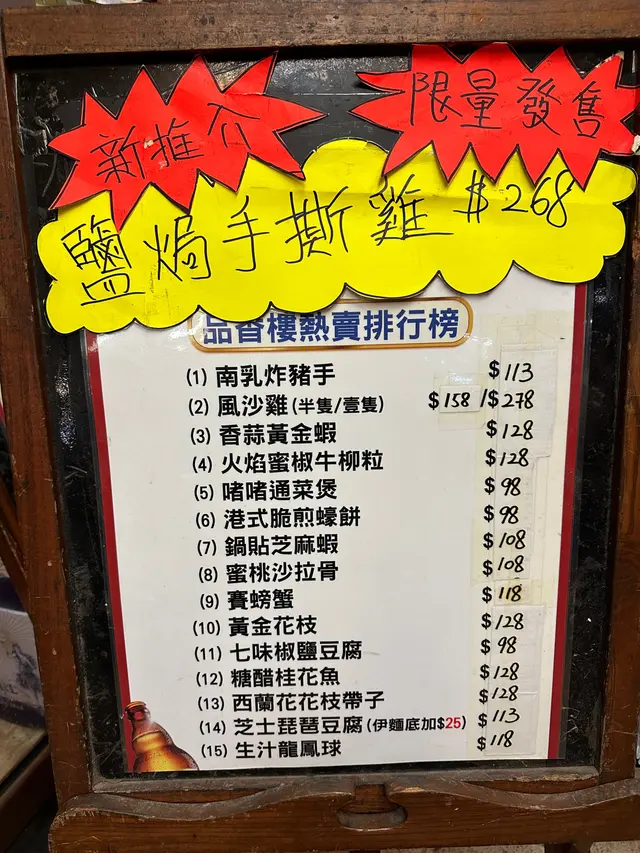 新推介
限量發售
鹽焗手撕雞 $268
品香樓熱賣排行榜
(1) 南乳炸豬手 $113
(2) 風沙雞(半隻/壹隻) $158 /$278
(3) 香蒜黃金蝦 $128
(4) 火焰蜜椒牛柳粒 $128
(5) 啫啫通菜煲 $98
(6) 港式脆煎蠔餅 $98
(7) 鍋貼芝麻蝦 $108
(8) 蜜桃沙拉骨 $108
(9) 賽螃蟹 $118
(10) 黃金花枝 $128
(11) 七味椒鹽豆腐 $98
(12) 糖醋桂花魚 $128
(13) 西蘭花花枝帶子 $128
(14) 芝士琵琶豆腐(伊麵底加$25) $113
(15) 生汁龍鳳球 $118